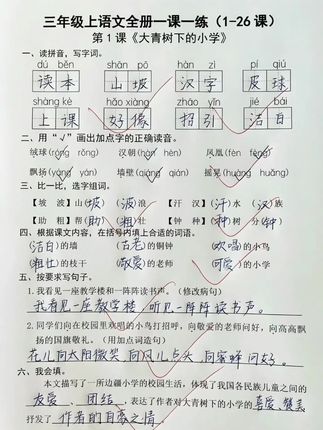 三年级上语文全册一课一练（1-26课）
第1课《大青树下的小学》
一、读拼音，写字词。
dú běn shān pō hàn zì pí qiú
读本 山坡 汉字 皮球
shàng kè hǎo xiàng zhāo yǐn jié bái
上课 好像 招引 洁白
二、用“√”画出加点字的正确读音。
绒球(róng rǒng) 汉朝(hàn hèn) 凤凰(fèn fèng)
飘扬(yáng yán) 墙壁(qiáng qáng) 摇晃(huàng huǎng)
三、比一比，选字组词。
【坡 波】山(坡) (波)浪 【汗 汉】(汗)水 (汉)族
【助 粗】帮(助) (粗)壮 【钟 种】(种)树 分(钟)
四、根据课文内容，在括号内填上合适的词语。
(洁白)的墙 (古老)的铜钟 (欢唱)的小鸟
(粗壮)的枝干 (敬爱)的老师 (可爱)的小学
五、按要求写句子。
1.我看见一座教学楼和一阵阵读书声。（修改病句）
我看见一座教学楼，听见一阵阵读书声。
2.同学们向在校园里欢唱的小鸟打招呼，向敬爱的老师问好，向高高飘
扬的国旗敬礼。（用加点词造句）
花儿向太阳微笑，向风儿点头，向蜜蜂问好。
六、我会填。
本文描写了一所边疆小学的校园生活，体现了我国各民族儿童之间的
友爱、团结，表达了作者对大青树下的小学的喜爱、赞美
抒发了作者的自豪之情。